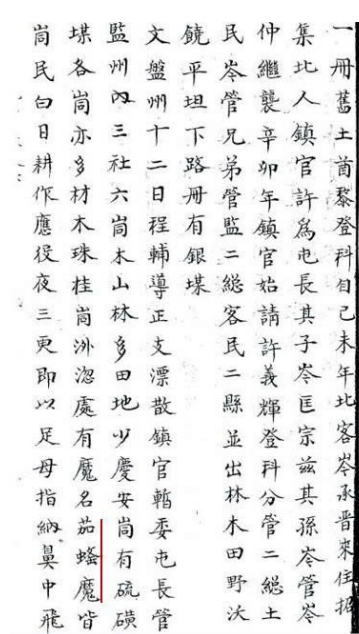 一冊舊土酋黎登科自己未年北客岑承晋來住招
集北人鎮官許為屯長其子岑匡宗兹其孫岑管岑
仲繼襲辛卯年鎮官始請許義輝登科分管二総土
民岑管兄弟管監二総客民二縣並出林木田野沃
饒平坦下路冊有銀堞
文盤州十二日程輔導正支漂散鎮官暫委屯長管
監州内三社六峝木山林多田地少慶安峝有硫磺
堞各峝亦多材木珠桂峝洲淴處有魔名茄䗋魔皆
峝民白日耕作應役夜三更即以足母指納鼻中飛